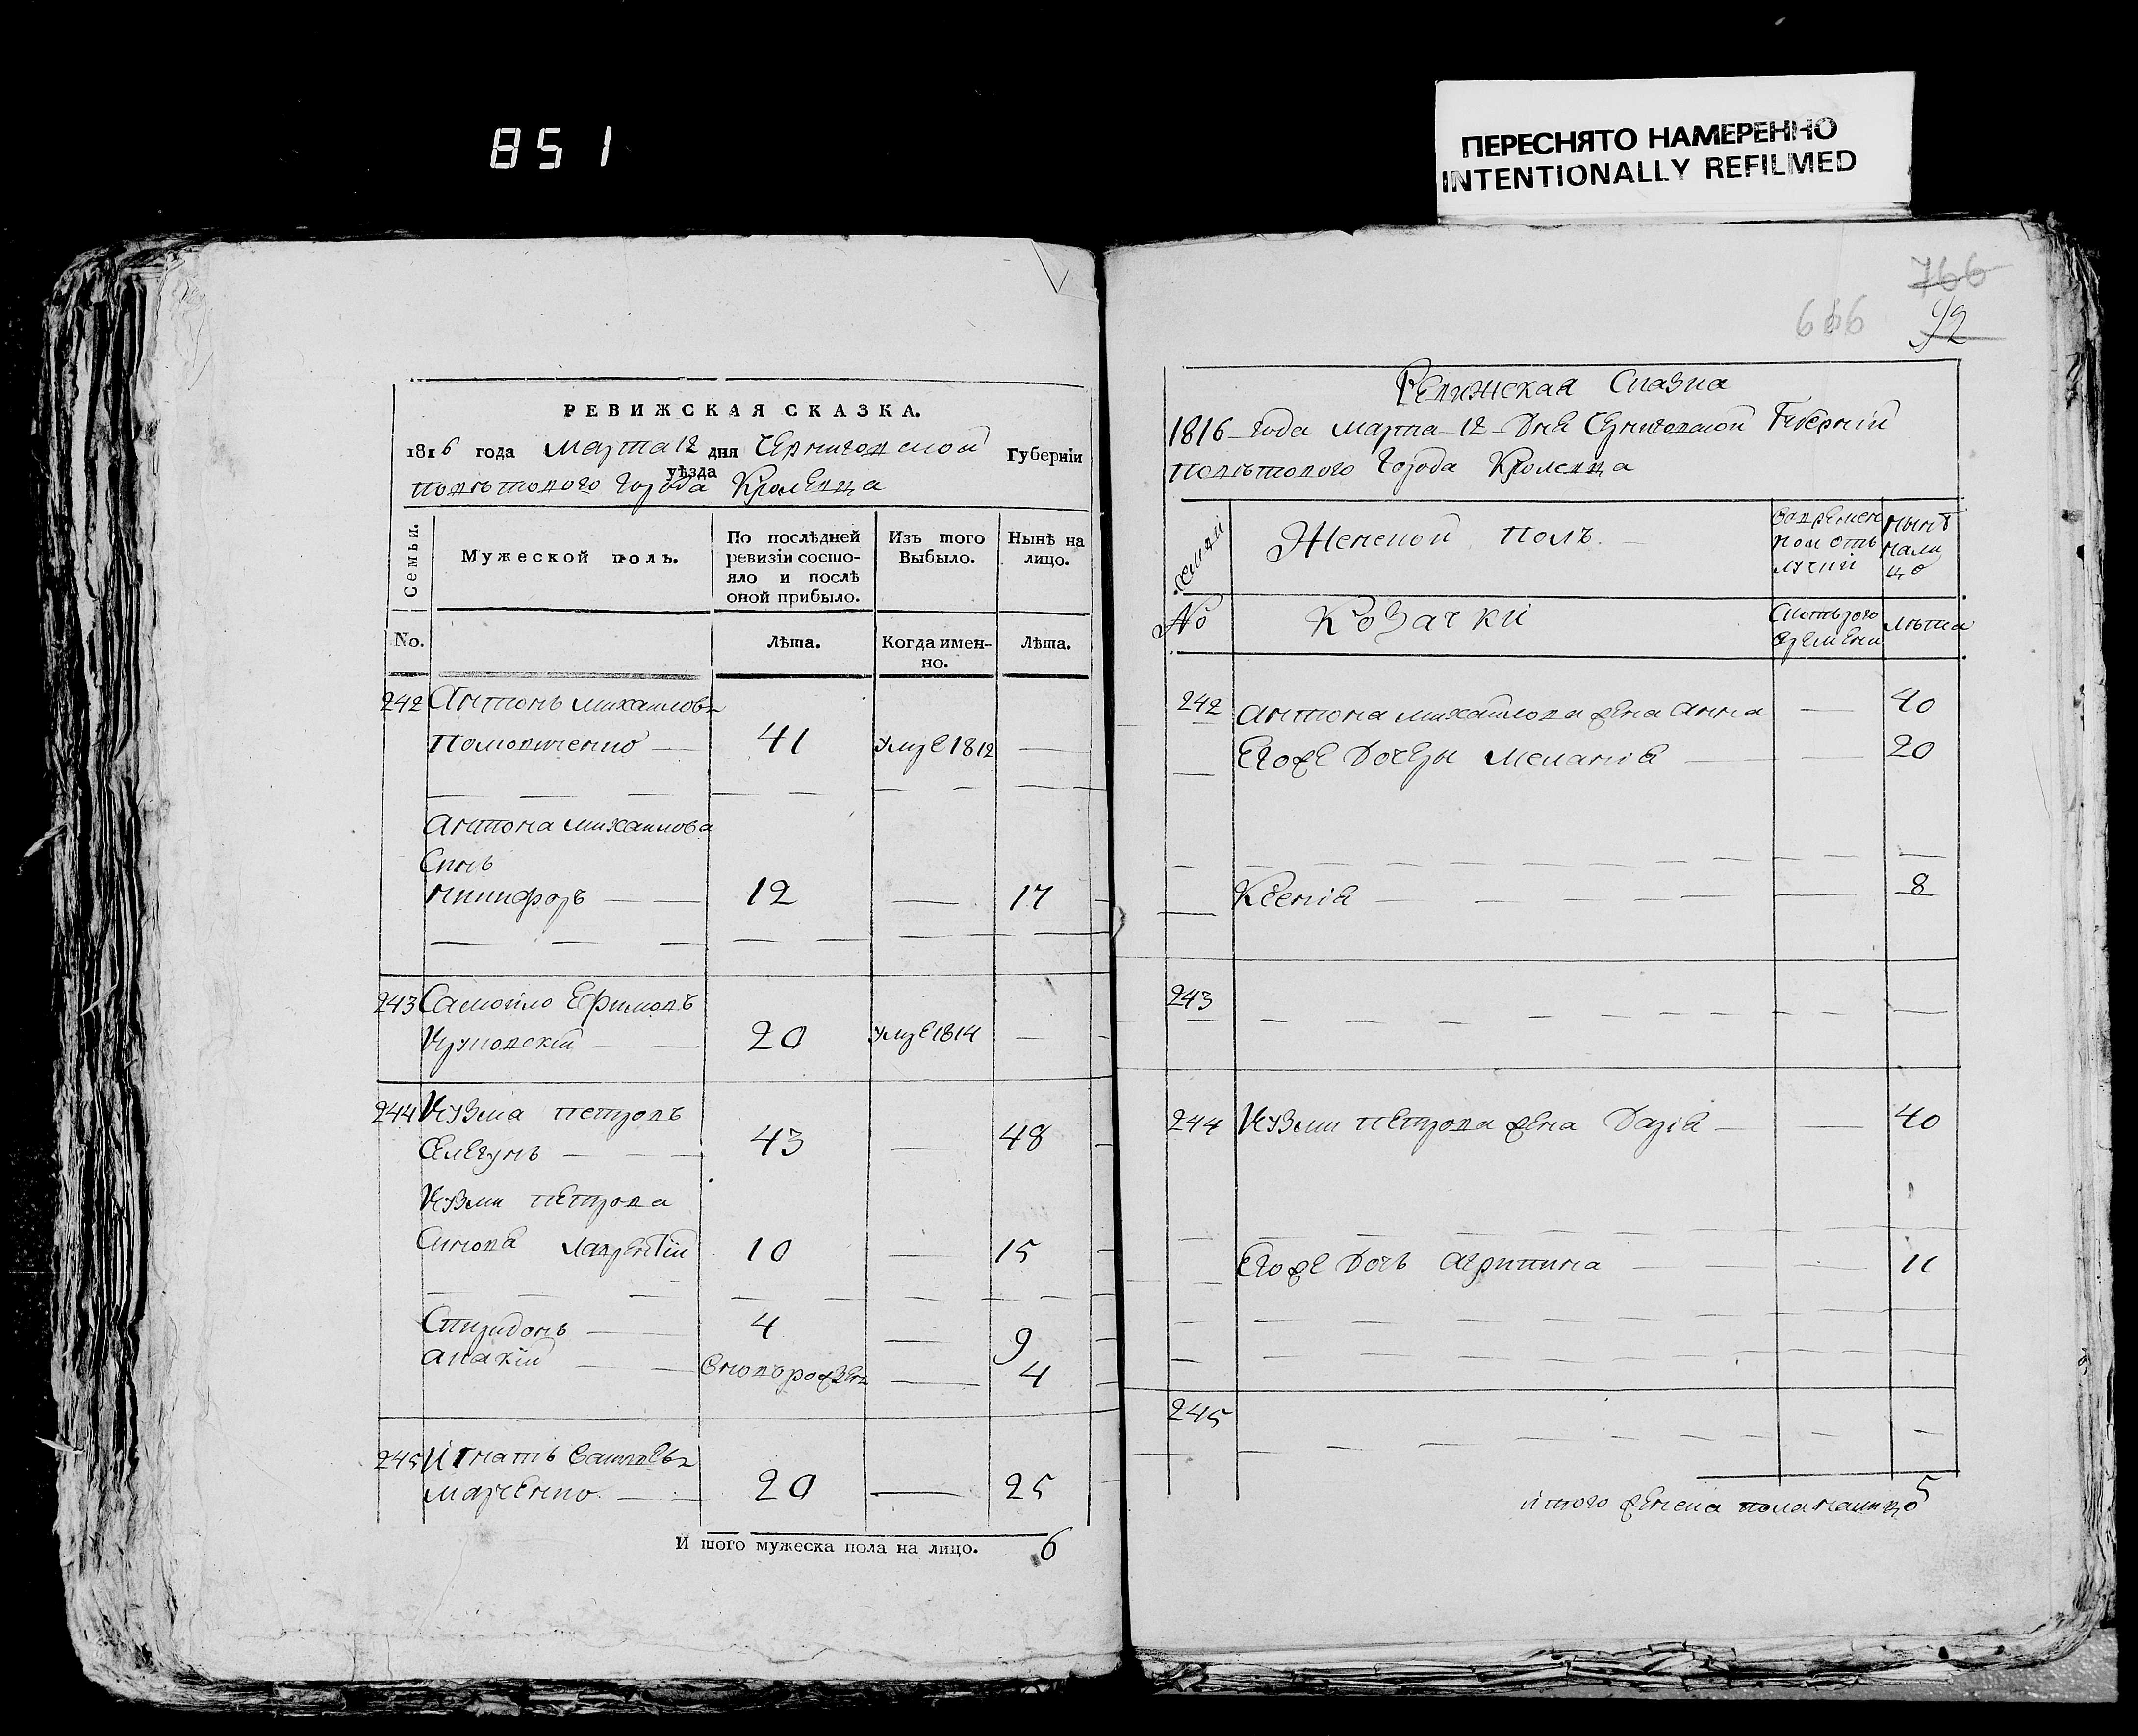 851
ПЕРЕСНЯТО НАМЕРЕННО
INTENTIONALLY REFILMED
РЕВИЖСКАЯ СКАЗКА.
1816 года Марта 12 дня Черниговской Губерніи
уѣзда
повѣтового города Кролевца
Семьи.
Мужеской полъ.
По послѣдней ревизіи состояло и послѣ оной прибыло.
Изъ того Выбыло.
Нынѣ на лицо.
No.
Лѣта.
Когда именно.
Лѣта.
242 Антонъ Михаиловъ
41 умре 1812
Антона Михаилова
Синъ
Никифоръ 12 17
243 Самойло Ефимовъ
20 умре 1814
244 Кузма Петровъ
43 48
Кузми Петрова
Синовѣ Лаврентій 10 15
Спиридонъ 4 9
Апакій вновъ рожденъ 4
245 Игнатъ
Марченко 20 25
И того мужеска пола на лицо. 6
766
666
92
Ревижская Сказка
1816 года Марта 12 Дня Черниговской Губерніи
повѣтового Города Кролевца
Семьи
Женской полъ
Во временной отлучкѣ
Нынѣ на лицо
No
Козачки
Съ которого времени
Лѣта
242 Антона Михайлова жена Анна 40
Егоже Дочеры Меланія 20
Ксенія 8
243
244 Кузми Петрова жена Дарія 40
Егоже Дочь Агрипина 11
245
итого женска пола налицо 5